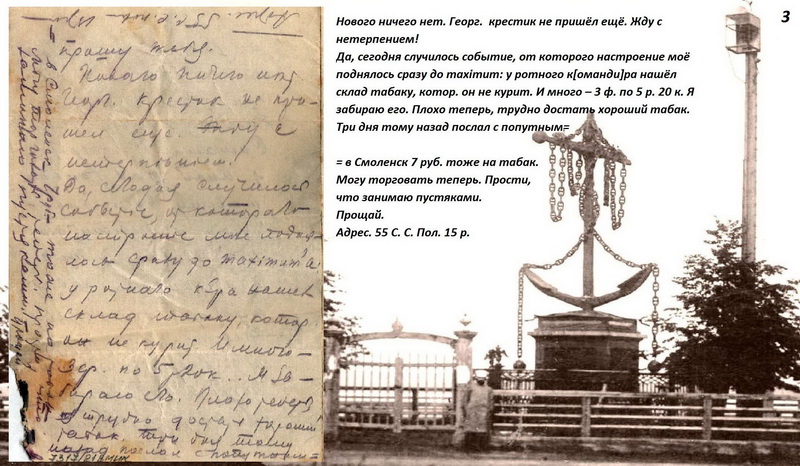 3
Нового ничего нет. Георг. крестик не пришёл ещё. Жду с
нетерпением!
Да, сегодня случилось событие, от которого настроение моё
поднялось сразу до maximum: у ротного к[оманди]ра нашёл
склад табаку, котор. он не курит. И много – 3 ф. по 5 р. 20 к. Я
забираю его. Плохо теперь, трудно достать хороший табак.
Три дня тому назад послал с попутным=
= в Смоленск 7 руб. тоже на табак.
Могу торговать теперь. Прости,
что занимаю пустяками.
Прощай.
Адрес. 55 С. С. Пол. 15 р.
прошу тебя.
Новаго ничего нет
Георг. крестик не при-
шел еще. Жду с
нетерпением.
Да, сегодня случилось
событие, от котораго
настроение мое подня-
лось сразу до maximum'а
у ротнаго к-ра нашел
склад табаку, котор
он не курит И много-
3 ф. по 5 р 20 к... Я за-
бираю его. Плохо теперь
трудно достать хороший
табак. Три дня тому
назад послал с попутным=
= в Смоленск 7 руб. тоже на табак
Могу торговать теперь. Прости что
занимаю пустяками Прощай
Адрес. 55 С. С. пол.